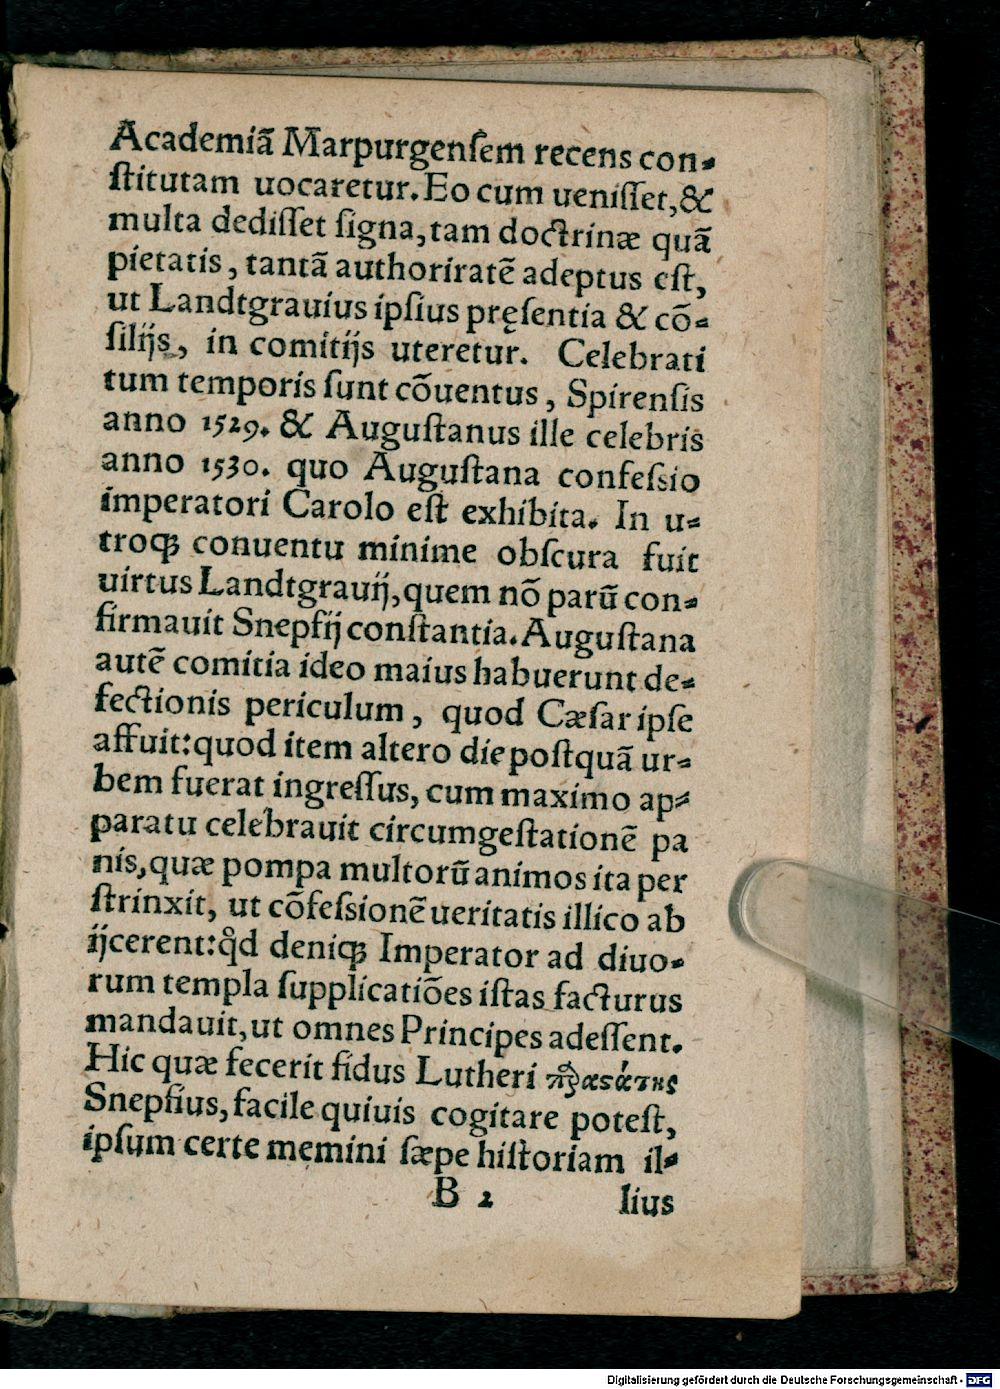 Academiã Marpurgenſem recens con⸗
ſtitutam uocaretur. Eo cum ueniſſet, &
multa dediſſet ſigna, tam doctrinæ quã
pietatis, tantã authoriratẽ adeptus eſt,
ut Landtgrauius ipſius pręſentia & cõ⸗
ſilijs, in comitijs uteretur. Celebrati
tum temporis ſunt cõuentus, Spirenſis
anno 1529. & Auguſtanus ille celebris
anno 1530. quo Auguſtana confeſsio
imperatori Carolo eſt exhibita. In u⸗
troqꝫ conuentu minime obſcura fuit
uirtus Landtgrauij, quem nõ parũ con⸗
firmauit Snepfij conſtantia. Auguſtana
autẽ comitia ideo maius habuerunt de⸗
fectionis periculum, quod Cæſar ipſe
affuit: quod item altero die poſtquã ur⸗
bem fuerat ingreſſus, cum maximo ap⸗
paratu celebrauit circumgeſtationẽ pa
nis, quæ pompa multorũ animos ita per
ſtrinxit, ut cõfeſsionẽ ueritatis illico ab
ijcerent: qd̊ deniqꝫ Imperator ad diuo⸗
rum templa ſupplicatiões iſtas facturus
mandauit, ut omnes Principes adeſſent.
Hic quæ fecerit fidus Lutheri παραστάτης
Snepfius, facile quiuis cogitare poteſt,
ipſum certe memini ſæpe hiſtoriam il⸗
B 2 lius
Digitalisierung gefördert durch die Deutsche Forschungsgemeinschaft - DFG